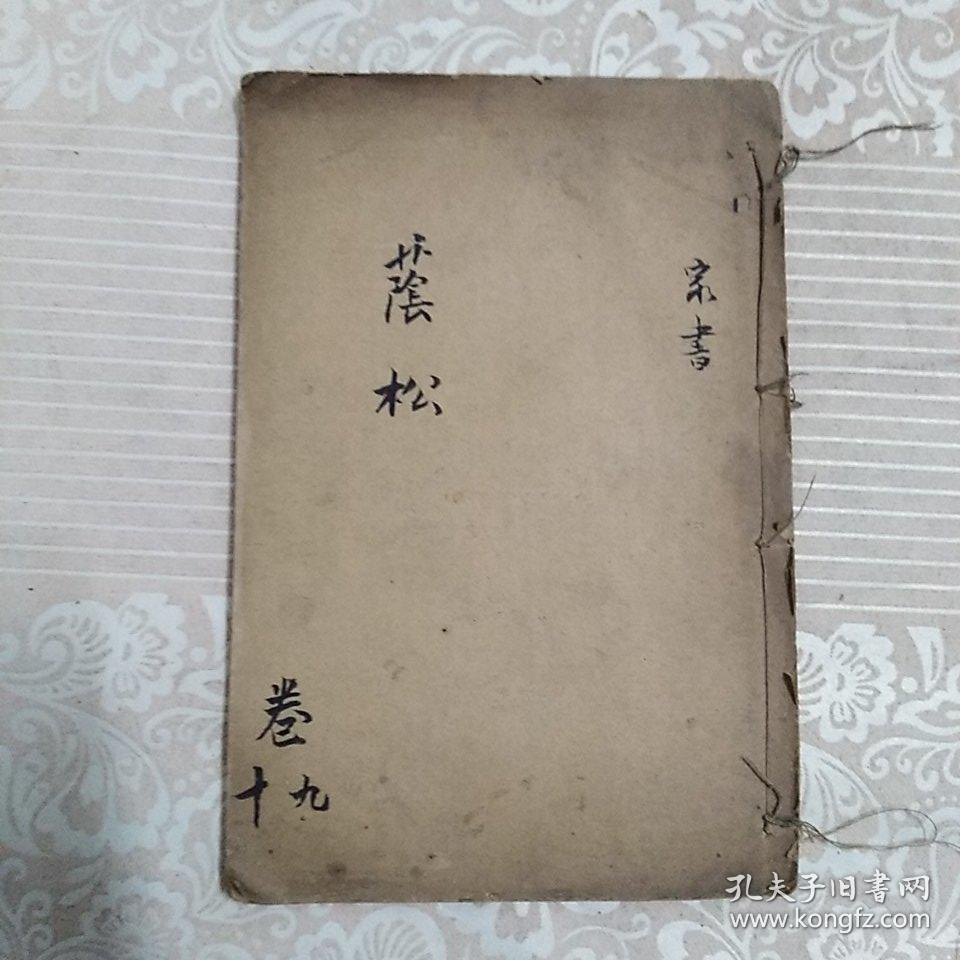 家書
蔭松
卷
十九
孔夫子旧書网
www.kongfz.com